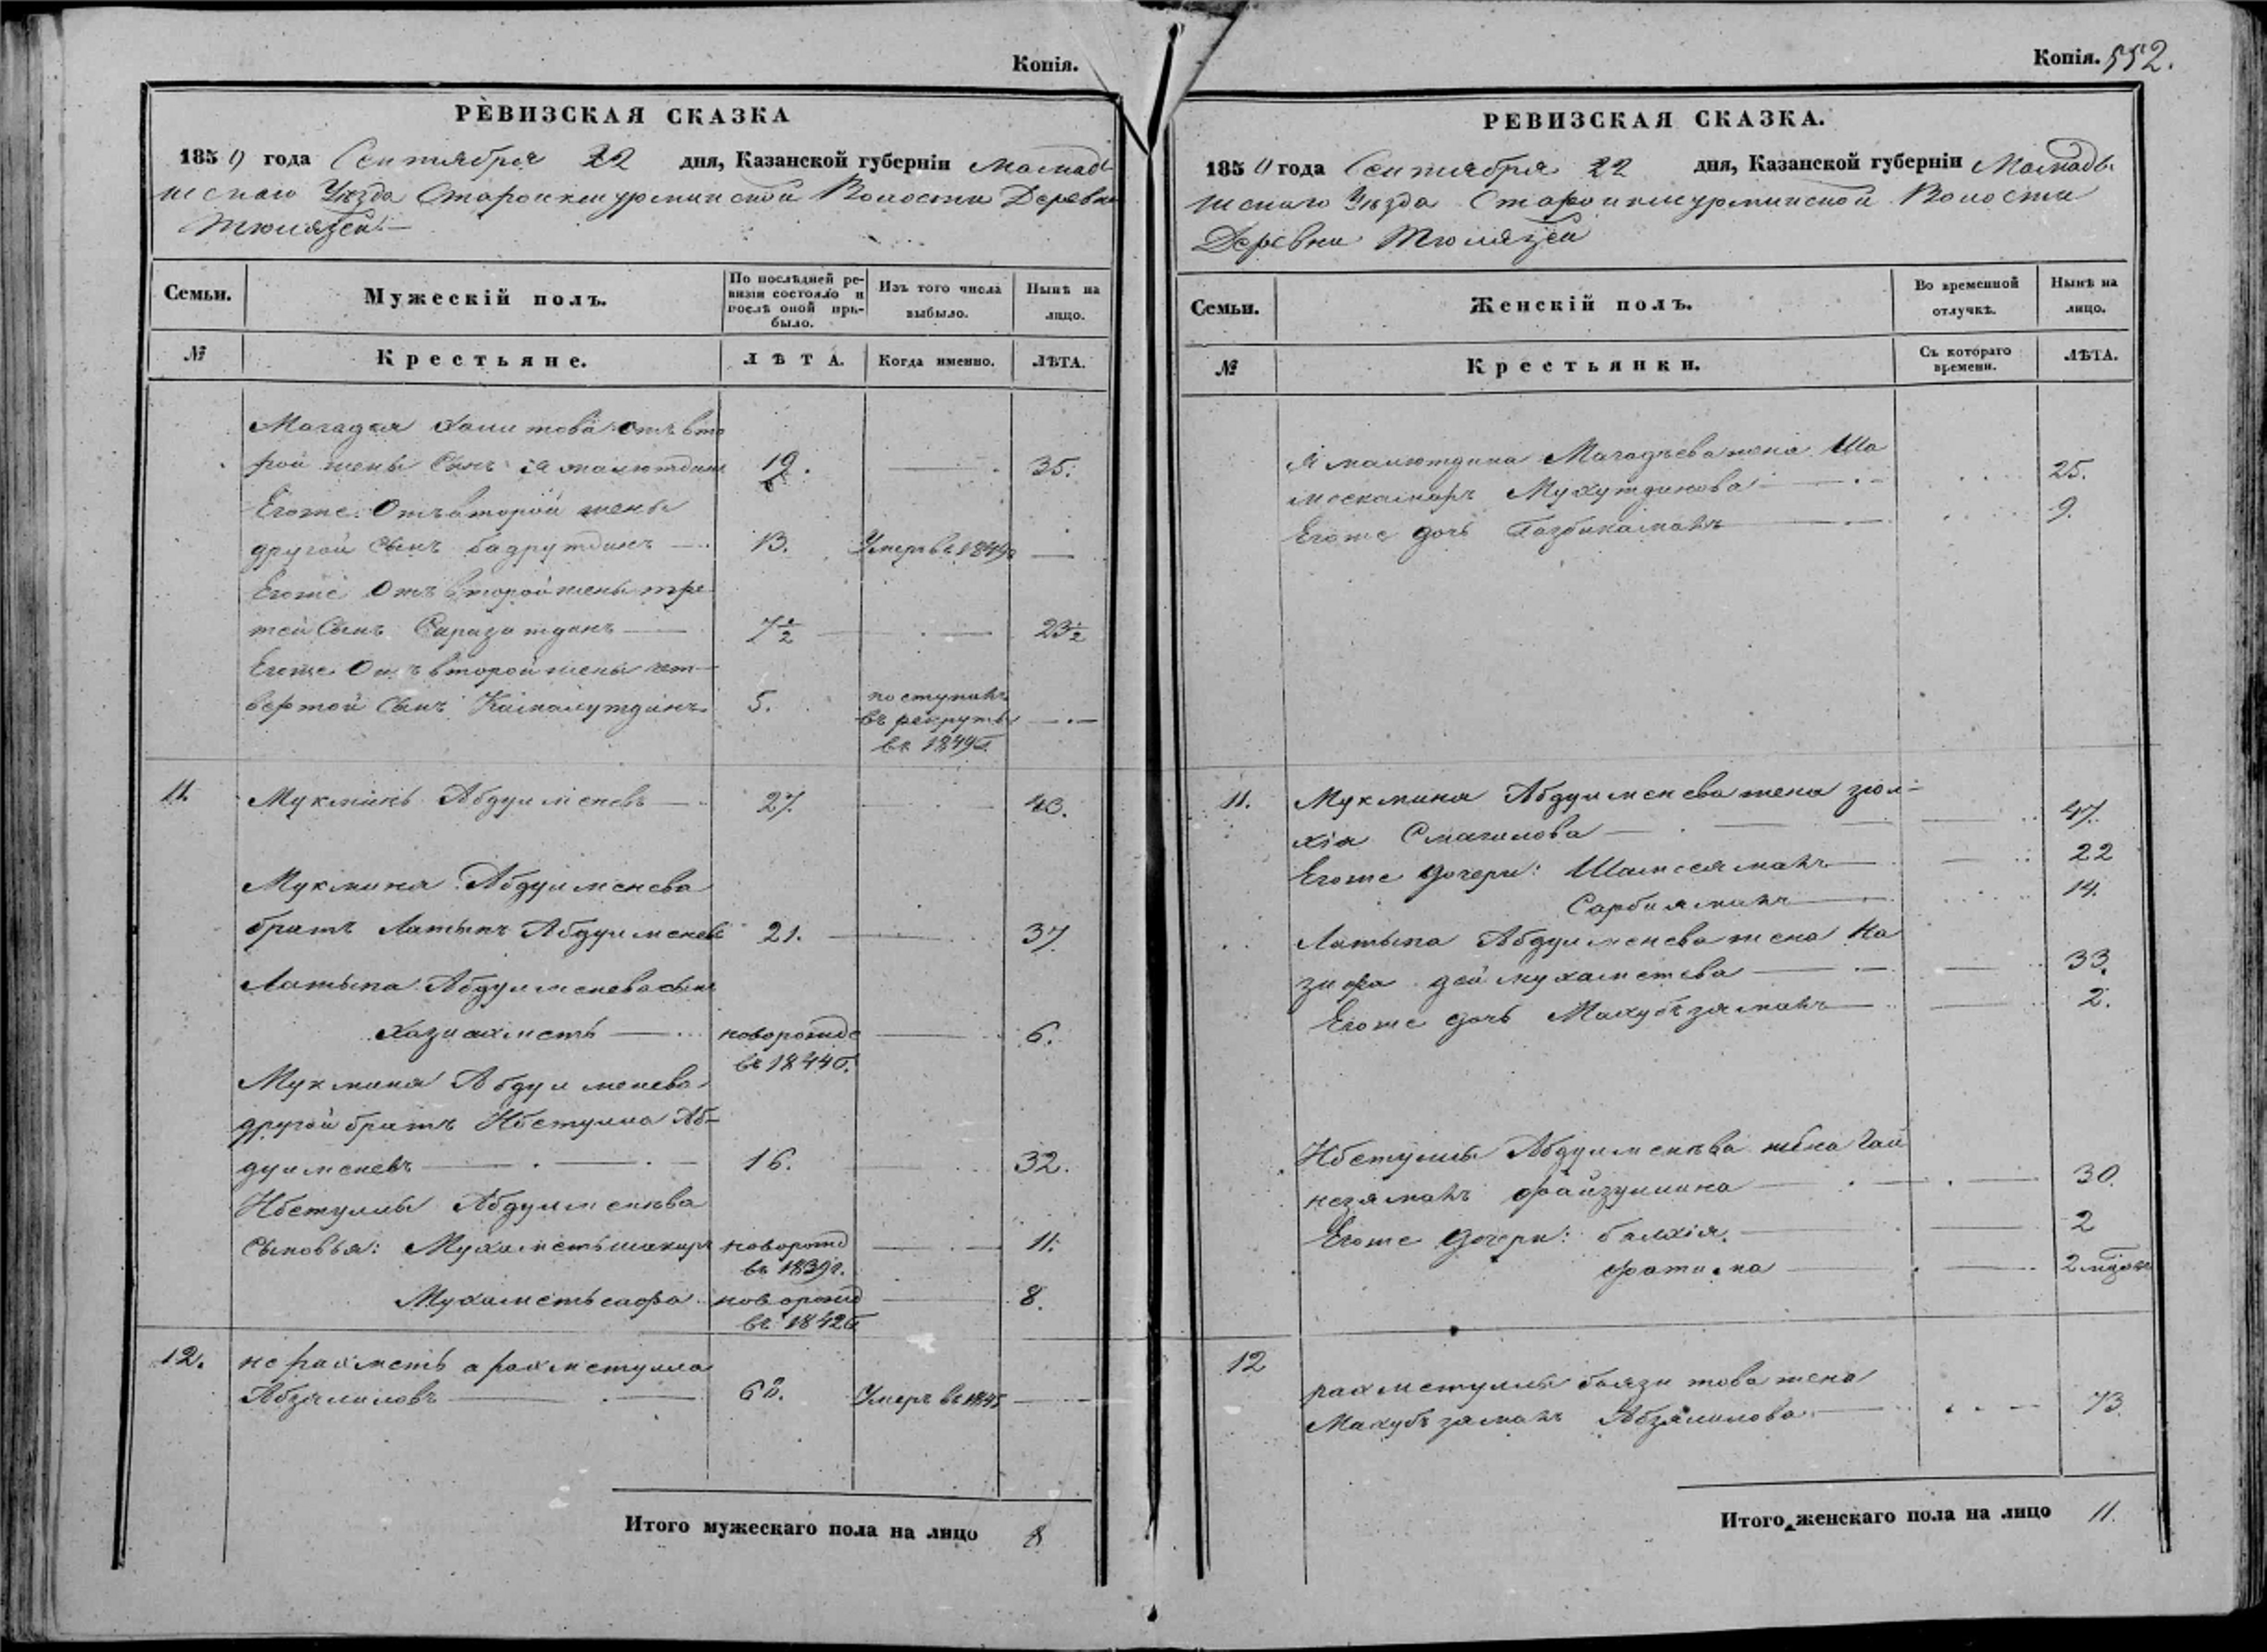 Копія.
РЕВИЗСКАЯ СКАЗКА
1850 года Сентября 22 дня, Казанской губерніи Мамады
шскаго Уѣзда Староикшурминской Волости Деревни
Тюлязей
Семьи.
Мужескій полъ.
По послѣдней ре-
визіи состояло и
послѣ оной при-
было.
Изъ того числа
выбыло.
Нынѣ на
лицо.
№
Крестьяне.
ЛѢТА.
Когда именно.
ЛѢТА.
Магадея Хамитова отъ вто
рой жены Сынъ 19. 35.
Егоже Отъ второй жены
другой Сынъ бадрутдинъ 13. Умеръ въ 1849
Егоже Отъ второй жены тре
тей Сынъ 7½ 23½
Егоже Отъ второй жены чет-
вертой Сынъ Камалутдинъ 5. поступилъ
въ рекруты
въ
11. Мукминъ Абдулменевъ 27. 43.
Мукмина Абдулменева
братъ Латыпъ Абдулменевъ 21. 37.
Латыпа Абдулменева сынъ
Хазиахметъ новорожде 6.
въ 1844 г.
Мукмина Абдулменева
другой братъ Ибетулла Аб-
дулменевъ 16. 32.
Ибетуллы Абдулменева
Сыновья: Мухаметьшакиръ новорожд 11.
въ 1839 г.
Мухаметьсафа новорожд 8.
въ 1842 г.
12. не рахметь а рахметулла
Абзялиловъ Умеръ въ
Итого мужескаго пола на лицо 8
Копія. 552.
РЕВИЗСКАЯ СКАЗКА.
1850 года Сентября 22 дня, Казанской губерніи Мамады
шскаго Уѣзда Староикшурминской Волости
Деревни Тюлязей
Семьи.
Женскій полъ.
Во временной
отлучкѣ.
Нынѣ на
лицо.
№
Крестьянки.
Съ котораго
времени.
ЛѢТА.
Магадѣева жена Ша
Мухутдинова 25.
Егоже дочь 9.
11. Мукмина Абдулменева жена зюл-
хія Смагилова 47.
Егоже дочери: Шамсеямалъ 22
Сарбиямалъ 14.
Латыпа Абдулменева жена На
зифа Деймухаметева 33.
Егоже дочь Махубъзямалъ 2.
Ибетуллы Абдулменѣва жена Гай
незямалъ файзуллина 30.
Егоже дочери: балхія 2
фатима 2
12 рахметуллы жена
Махубъзямалъ Абзялилова 73.
Итого женскаго пола на лицо 11.